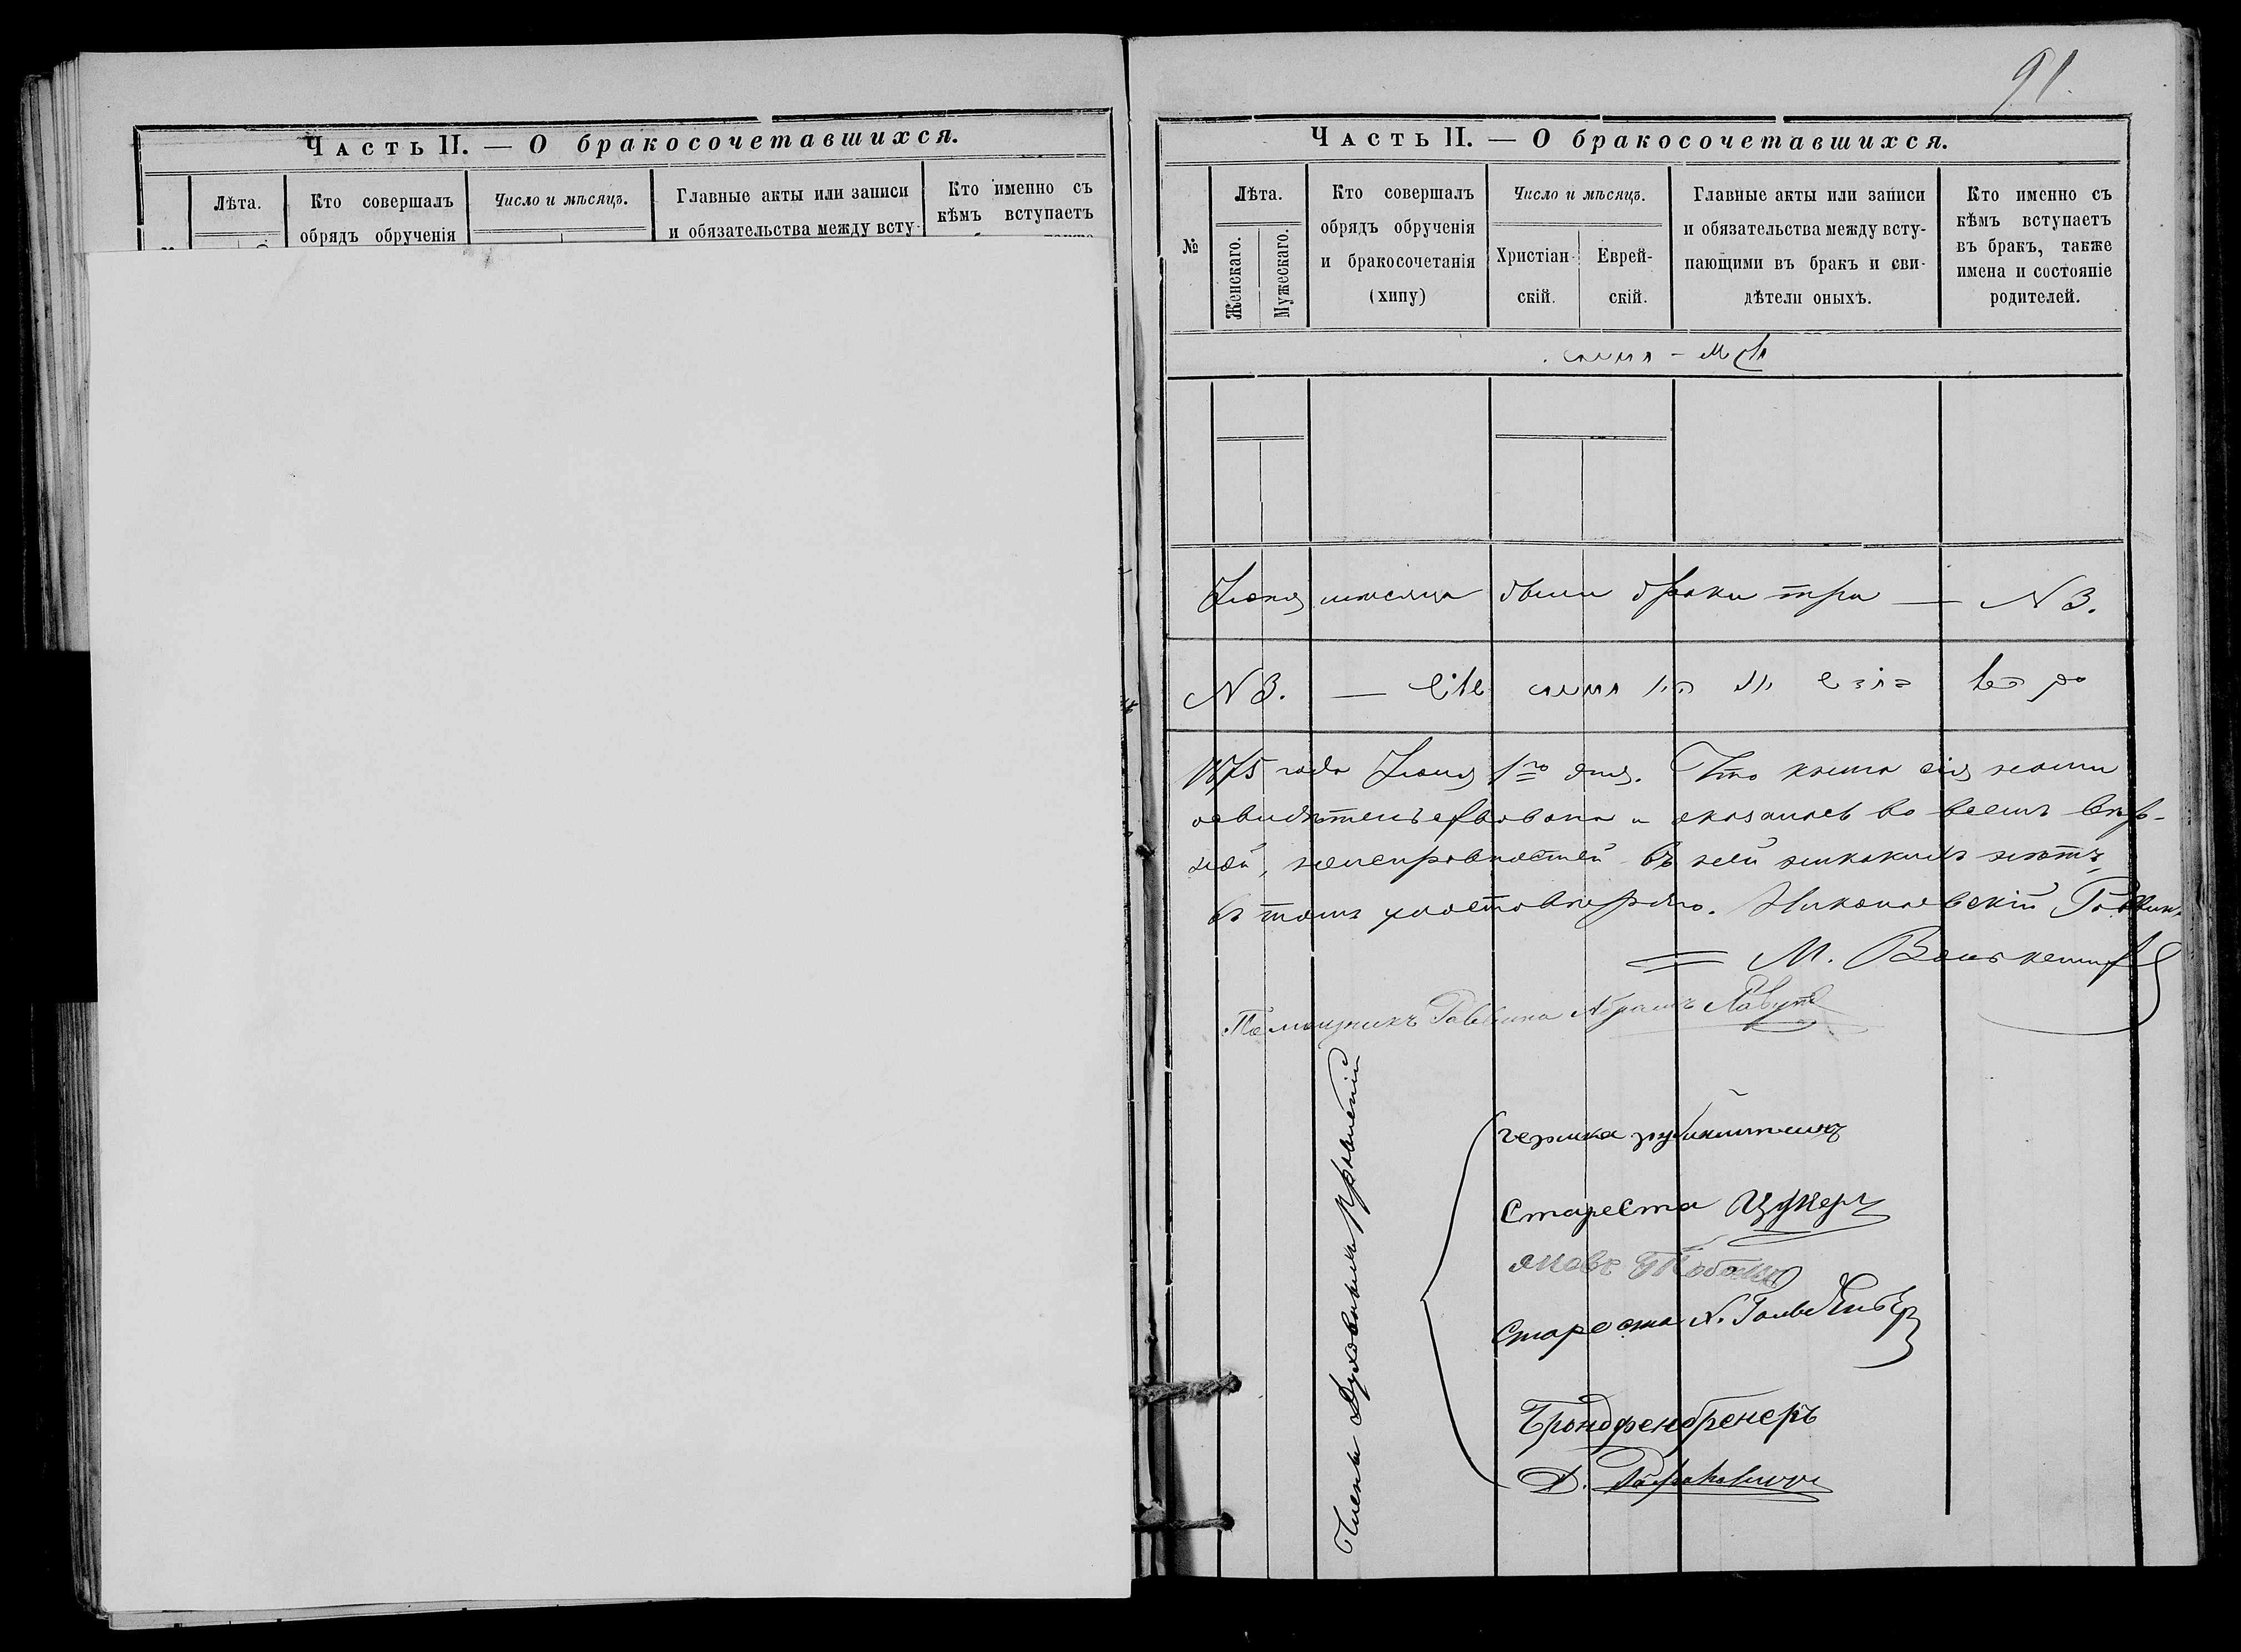 Часть II. — О бракосочетавшихся.
Лѣта.
Кто совершалъ
обрядъ обрученія
Число и мѣсяцъ.
Главные акты или записи
и обязательства между всту-
Кто именно съ
кѣмъ вступаетъ
91.
Часть II. — О бракосочетавшихся.
№
Лѣта.
Женскаго.
Мужескаго.
Кто совершалъ
обрядъ обрученія
и бракосочетанія
(хипу)
Число и мѣсяцъ.
Христіан-
скій.
Еврей-
скій.
Главные акты или записи
и обязательства между всту-
пающими въ бракъ и сви-
дѣтели оныхъ.
Кто именно съ
кѣмъ вступаетъ
въ бракъ, также
имена и состояніе
родителей.
мѣсяца были браки три — N 3.
N 3. —
1875 года 1го дня. Что книга сія нами
освидѣтельствована и оказалась во всемъ вѣр-
ной, неисправностей въ ней никакихъ нѣтъ,
въ томъ удостовѣряю. Николаевскій Раввинъ
М.
Помощникъ Раввина Абрамъ Лавутъ
Члены Духовнаго Правленія
Староста Цукеръ
Староста
Бронфенбренеръ
Д. Рабиновичъ